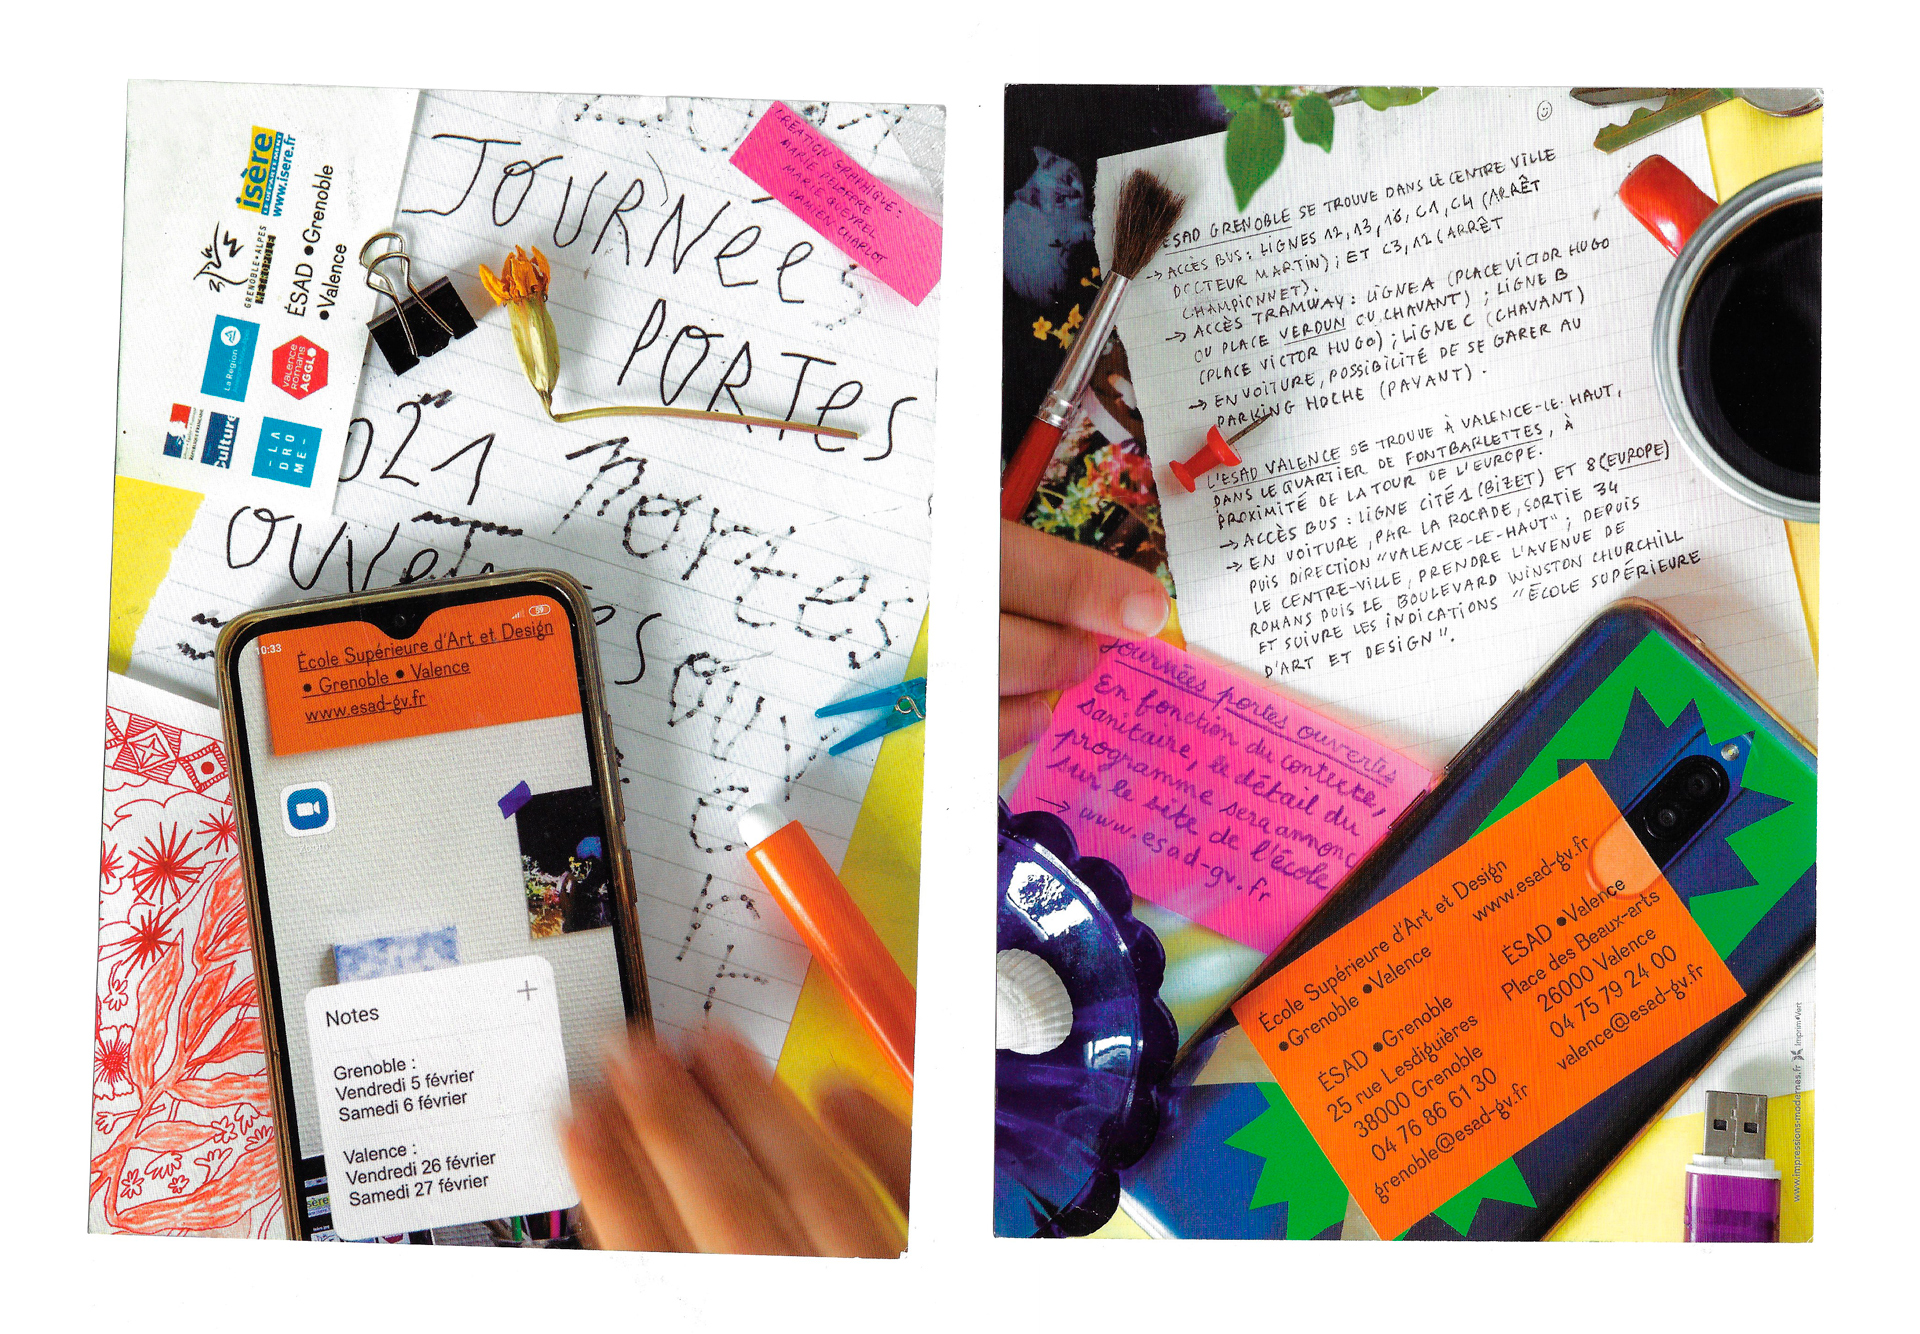 isère
LE DÉPARTEMENT
www.isere.fr
GRENOBLE•ALPES
MÉTROPOLE
ÉSAD •Grenoble
•Valence
La Région
Valence
Romans
AGGLO
culture
-LA
DRO
ME-
JOURNéeS
PORTeS
2021
OUVeRTeS
PORTES
OUVERT
CRÉATION GRAPHIQUE :
MARIE DELAFFRE
MARIE QUÉVREL
DAMIEN CHARLOT
10:33
59
École Supérieure d'Art et Design
• Grenoble • Valence
www.esad-gv.fr
Zoom
Notes
+
Grenoble :
Vendredi 5 février
Samedi 6 février
Valence :
Vendredi 26 février
Samedi 27 février
ESAD GRENOBLE SE TROUVE DANS LE CENTRE VILLE
→ ACCÈS BUS : LIGNES 12, 13, 16, C1, C4 (ARRÊT
DOCTEUR MARTIN) ; ET C3, 12 (ARRÊT
CHAMPIONNET).
→ ACCÈS TRAMWAY : LIGNE A (PLACE VICTOR HUGO
OU PLACE VERDUN OU CHAVANT) ; LIGNE B
(PLACE VICTOR HUGO) ; LIGNE C (CHAVANT)
→ EN VOITURE, POSSIBILITÉ DE SE GARER AU
PARKING HOCHE (PAYANT).
L'ESAD VALENCE SE TROUVE À VALENCE-LE-HAUT,
DANS LE QUARTIER DE FONTBARLETTES, À
PROXIMITÉ DE LA TOUR DE L'EUROPE.
→ ACCÈS BUS : LIGNE CITÉ 1 (BIZET) ET 8 (EUROPE)
→ EN VOITURE, PAR LA ROCADE, SORTIE 34
PUIS DIRECTION "VALENCE-LE-HAUT" ; DEPUIS
LE CENTRE-VILLE, PRENDRE L'AVENUE DE
ROMANS PUIS LE BOULEVARD WINSTON CHURCHILL
ET SUIVRE LES INDICATIONS "ÉCOLE SUPÉRIEURE
D'ART ET DESIGN".
Journées portes ouvertes
En fonction du contexte,
sanitaire, le détail du
programme sera annonc
sur le site de l'école
→ www.esad-gv.fr
École Supérieure d'Art et Design
•Grenoble •Valence
www.esad-gv.fr
ÉSAD •Grenoble
25 rue Lesdiguières
38000 Grenoble
04 76 86 61 30
grenoble@esad-gv.fr
ÉSAD •Valence
Place des Beaux-arts
26000 Valence
04 75 79 24 00
valence@esad-gv.fr
www.impressions-modernes.fr Imprim•Vert